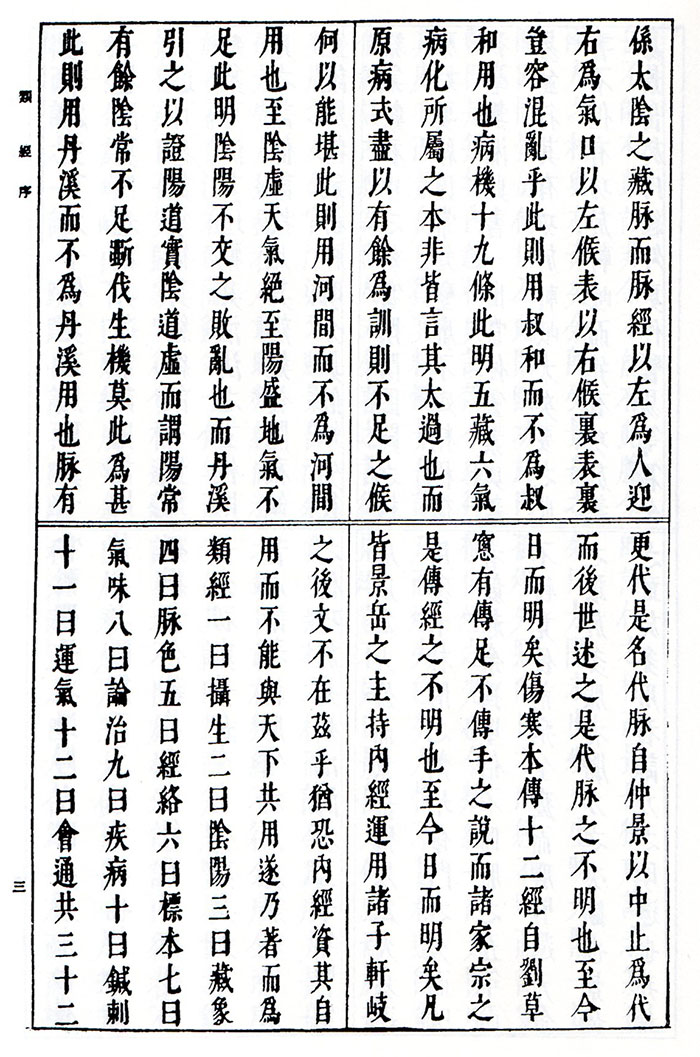 係太陰之藏脉而脉經以左爲人迎
右爲氣口以左候表以右候裏表裏
豈容混亂乎此則用叔和而不爲叔
和用也病機十九條此明五藏六氣
病化所屬之本非皆言其太過也而
原病式盡以有餘爲訓則不足之候
何以能堪此則用河間而不為河間
用也至陰虛天氣絕至陽盛地氣不
足此明陰陽不交之敗亂也而丹溪
引之以證陽道實陰道虛而謂陽常
有餘陰常不足斲伐生機莫此爲甚
此則用丹溪而不爲丹溪用也脉有
更代是名代脉自仲景以中止爲代
而後世述之是代脉之不明也至今
日而明矣傷寒本傳十二經自劉草
窻有傳足不傳手之說而諸家宗之
是傳經之不明也至今日而明矣凡
皆景岳之主持內經運用諸子軒岐
之後文不在茲乎猶恐內經資其自
用而不能與天下共用遂乃著而爲
類經一曰攝生二曰陰陽三曰藏象
四曰脉色五曰經絡六曰標本七曰
氣味八曰論治九曰疾病十曰鍼刺
十一曰運氣十二曰會通共三十二
類經序
三